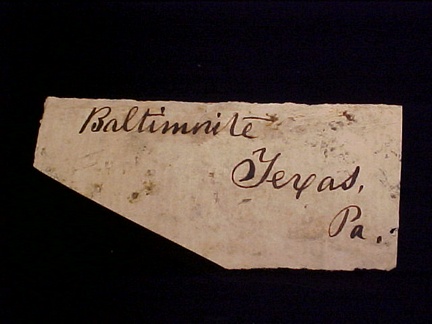 Baltimorite
Texas,
Pa.